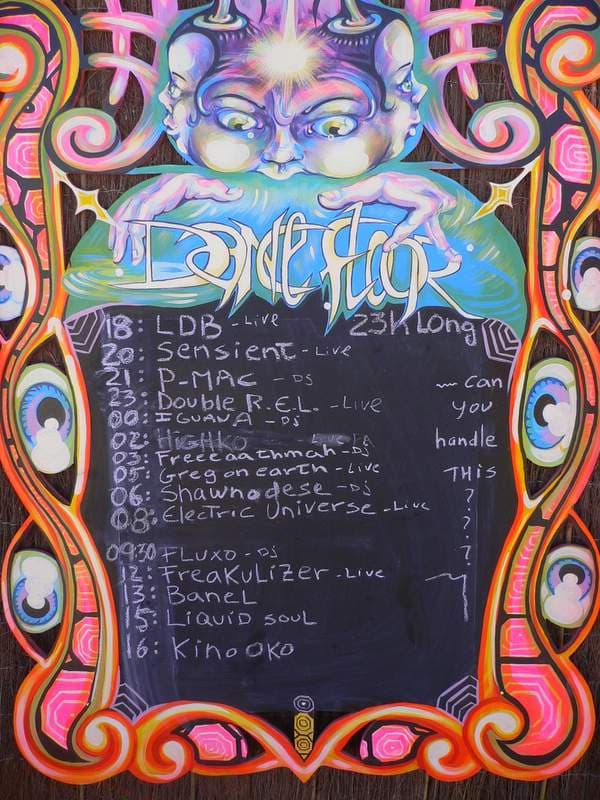 Dance floor
18: LDB - Live 23h Long
20: Sensient - Live
21: P-MAC - DJ
23: Double R.E.L. - Live
00: IGUANA - DJ
02: HIGHKO
03: Freeeaathmah - DJ
05: Greg on earth - Live
06: Shawnodese - DJ
08: Electric Universe - Live
09:30 FLUXO - DJ
12: FreaKuLiZer - Live
13: BaneL
15: LIQUID SOUL
16: Kino OKO
can
you
handle
THIS
?
?
?
?